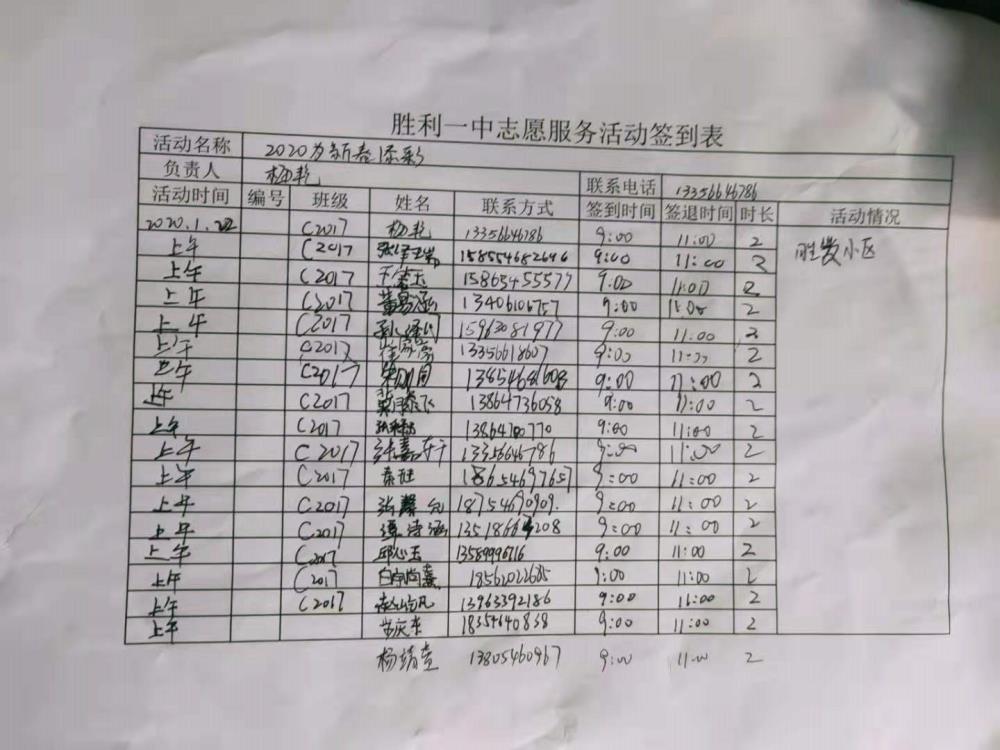 胜利一中志愿服务活动签到表
活动名称 2020为新春添彩
负责人 杨乾 联系电话 13356646786
活动时间 编号 班级 姓名 联系方式 签到时间 签退时间 时长 活动情况
2020.1.22 C2017 杨乾 13356646786 9:00 11:00 2 胜发小区
上午 C2017 9:00 11:00 2
上午 C2017 15865455577 9:00 11:00 2
上午 C2017 董易涵 13406106757 9:00 11:00 2
上午 C2017 15963081977 9:00 11:00 2
上午 C2017 1335618607 9:00 11:00 2
上午 C2017 9:00 11:00 2
上午 C2017 13864736058 9:00 11:00 2
上午 C2017 9:00 11:00 2
上午 C2017 13356646786 9:00 11:00 2
上午 C2017 18654697657 9:00 11:00 2
上午 C2017 张馨 9:00 11:00 2
上午 C2017 谭诗涵 9:00 11:00 2
上午 C2017 邱心玉 9:00 11:00 2
上午 C2017 18562022685 9:00 11:00 2
上午 C2017 13963392186 9:00 11:00 2
上午 18354640838 9:00 11:00 2
杨靖萱 13805460967 9:00 11:00 2